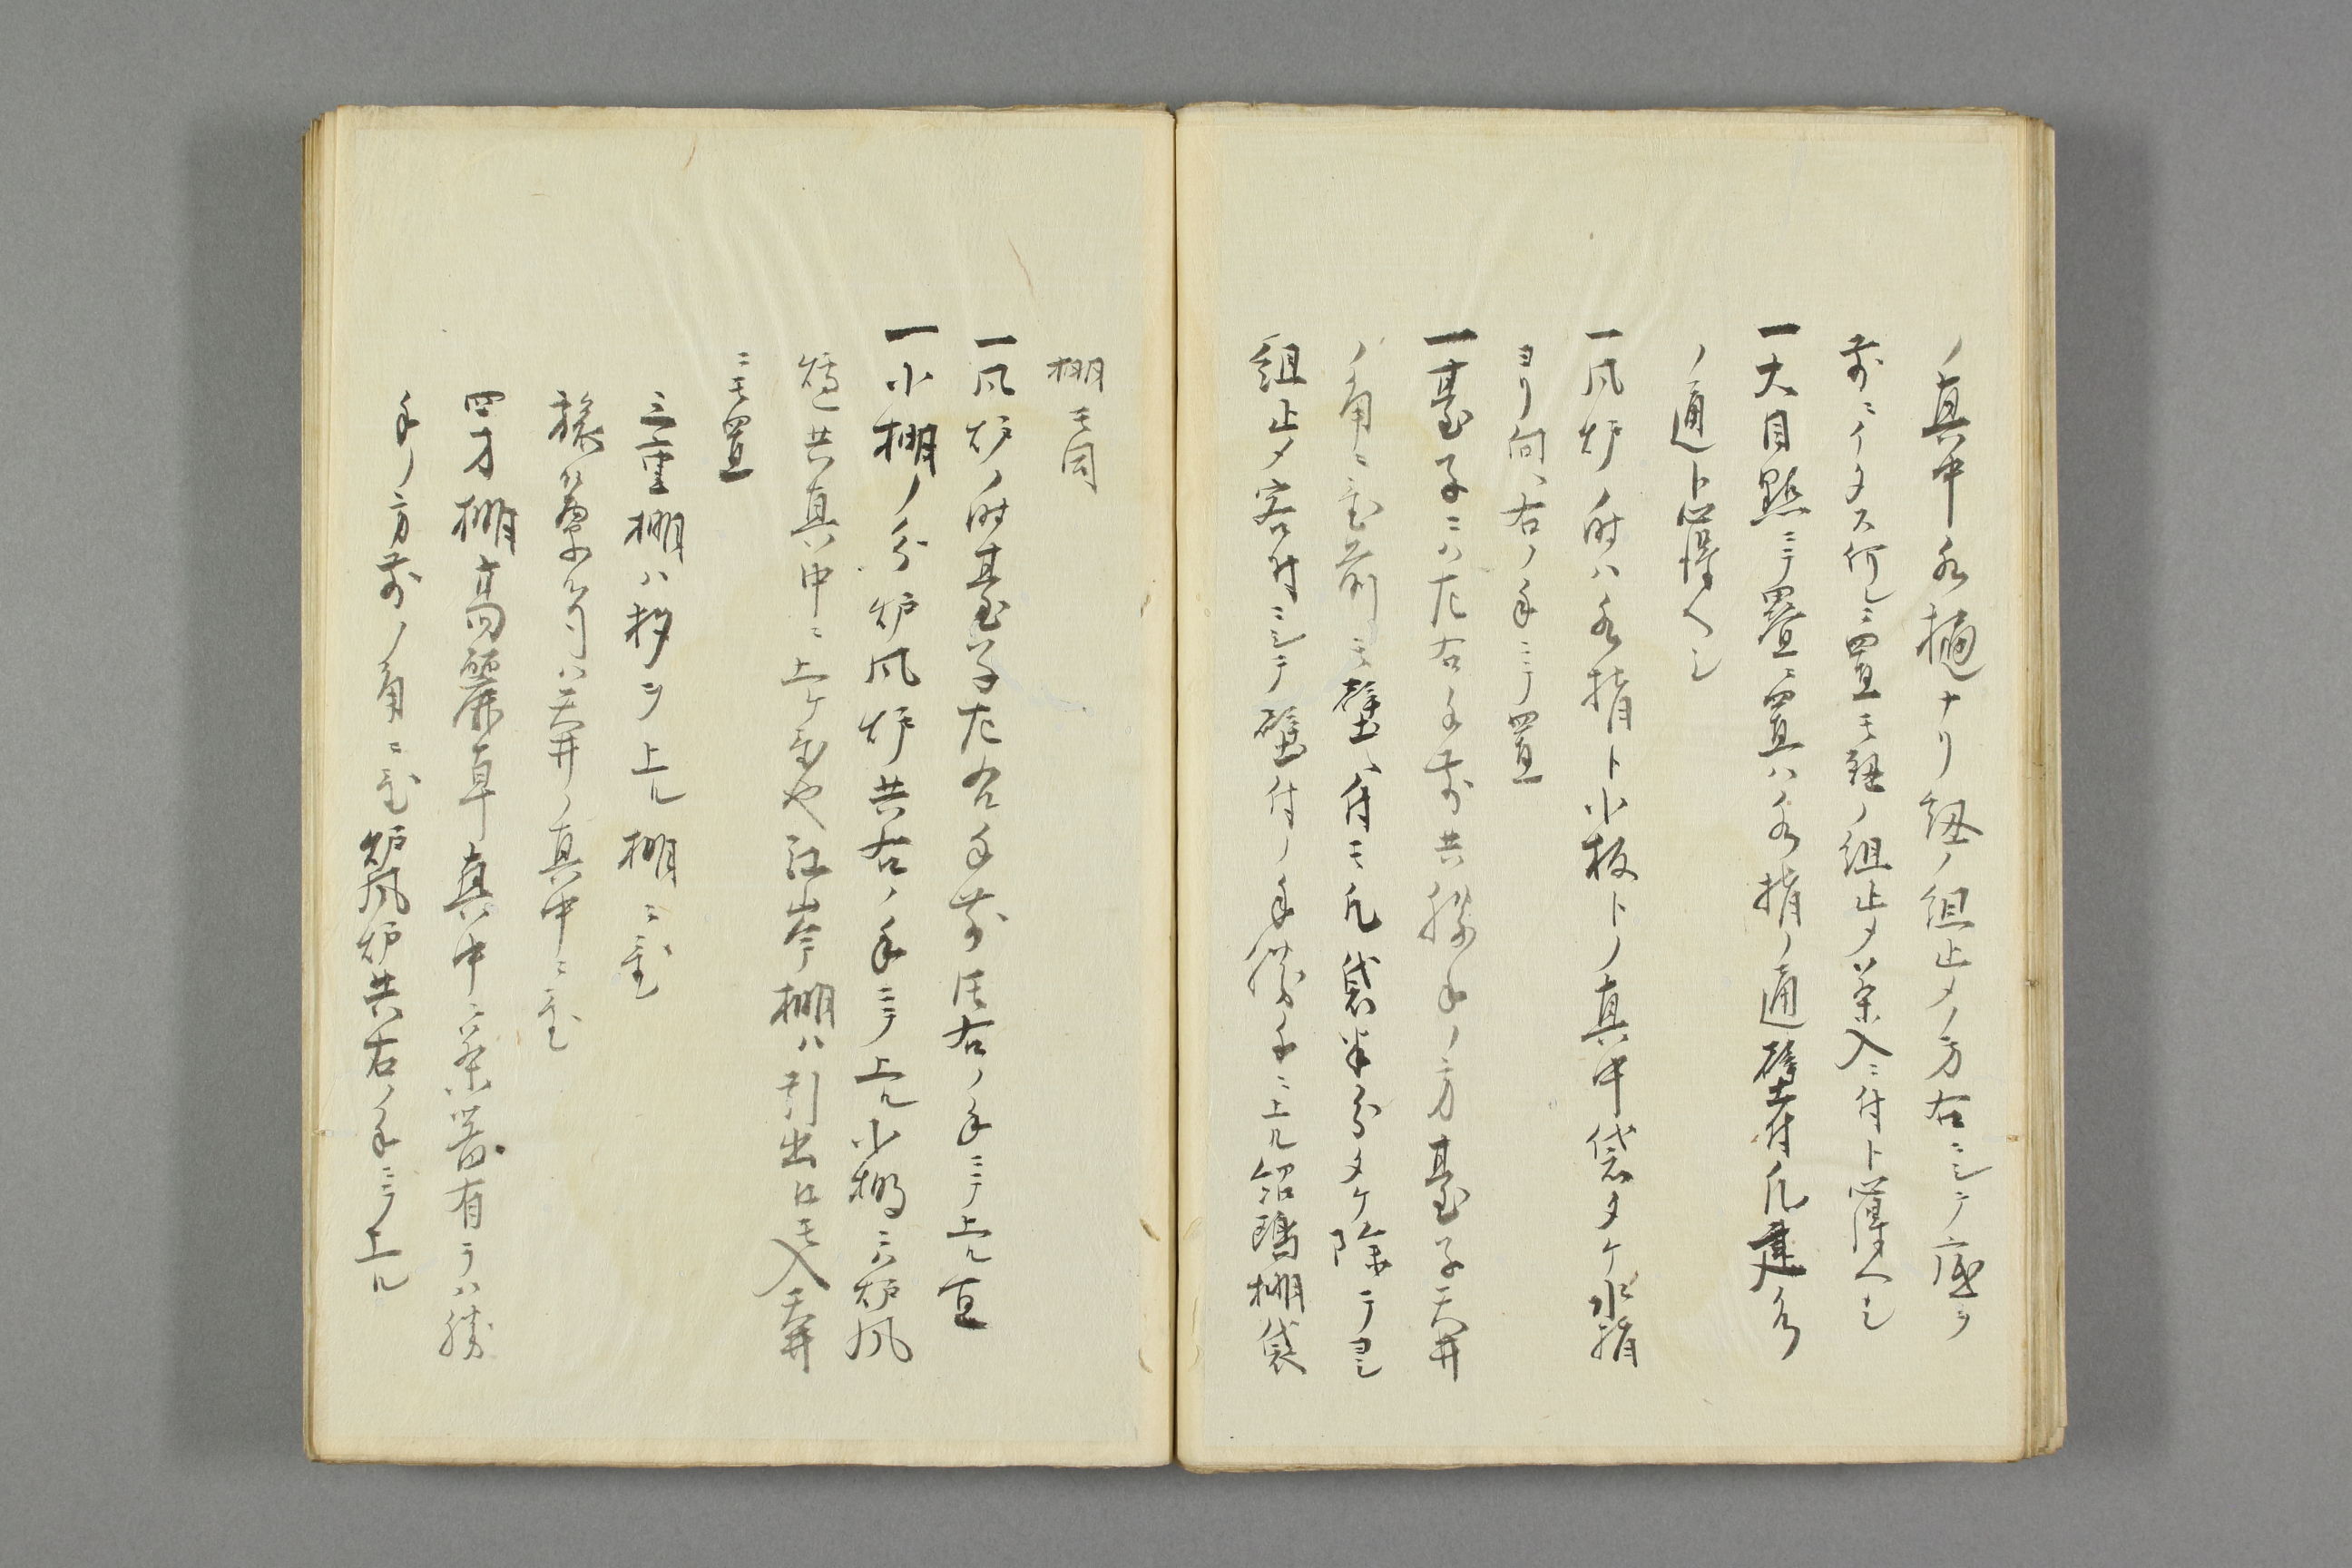 ノ真中水樋ナリ紐ノ組止メノ方右ニシテ底ヲ
前ニイタス何レニ置モ紐ノ組止メ茶入ニ付ト心得ヘシ
一大目點ニテ疊ニ置ハ水指ノ通壁付凡建水
ノ通ト心得ヘシ
一風炉ノ時ハ水指ト小板トノ真中袋タケ水指
ヨリ向ヘ右ノ手ニテ置
一臺子ニハ左右手前共勝手ノ方臺子天井
ノ角ニ置前モ壁ヘ付モ凡袋半分タケ除テヨシ
組止メ客付ニシテ壁付ノ手勝手ニ上ル紹鴎棚袋
棚モ同
一風炉ノ時臺子左右手前任右ノ手ニテ上ル直
一小棚ノ分炉風炉共右ノ手ニテ上ル小棚ニハ炉風
炉共真中ニ上ケ置也江岑棚ハ引出ニモ入天井
ニモ置
三重棚ハ杉ヲ上ル棚ニ置
天井ノ真中ニ置
四方棚高麗卓真中ニ茶器有ラハ勝
手ノ方前ノ角ニ置炉風炉共右ノ手ニテ上ル